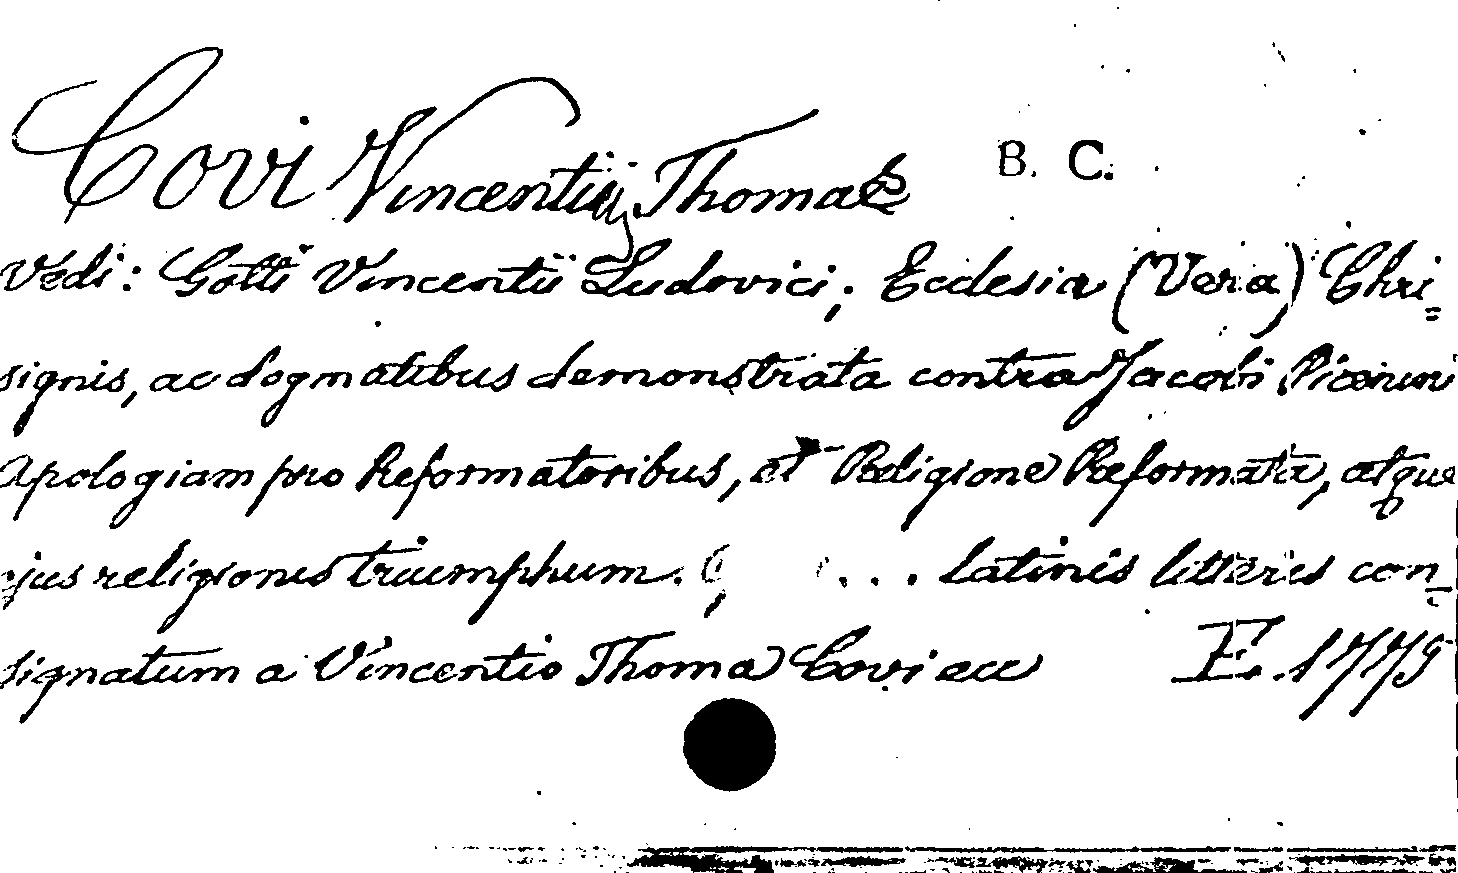 Covi Vincentii Thomae B. C.
Vedi: Gotti Vincentii Ludovici; Ecclesia (Vera) Chri=
signis, ac dogmatibus demonstrata contra Jacobi Picenini
Apologiam pro Reformatoribus, et Religione Reformata, atque
ejus religionis triumphum. ... latinis litteris con=
signatum a Vincentio Thoma Covi ecc E. 1779